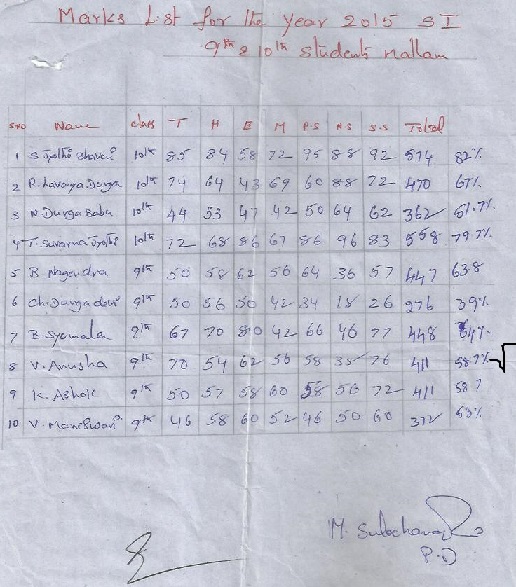 Marks List for the year 2015 SI
9th & 10th students nallam
SNO Name class T H E M P.S N.S S.S Total
1 S Jyothi 10th 85 84 58 72 95 88 92 574 82%
2 P. Lavanya Durga 10th 74 64 43 69 60 88 72 470 67%
3 N Durga Babu 10th 44 53 47 42 50 64 62 362 51.7%
4 T. Suvarna Jyothi 10th 72 68 86 67 86 96 83 558 79.7%
5 B Nagendra 9th 50 58 62 56 64 36 57 447 63.8
6 Ch. Durga devi 9th 50 56 50 42 34 18 26 276 39%
7 B Syamala 9th 67 70 80 42 66 46 77 448 64%
8 V. Anusha 9th 70 54 62 56 58 35 76 411 58.7%
9 K. Ashok 9th 50 57 58 60 58 56 72 411 58.7
10 V. Maheswari 9th 46 58 60 52 46 50 60 372 53%
M. Sulochana
P.D